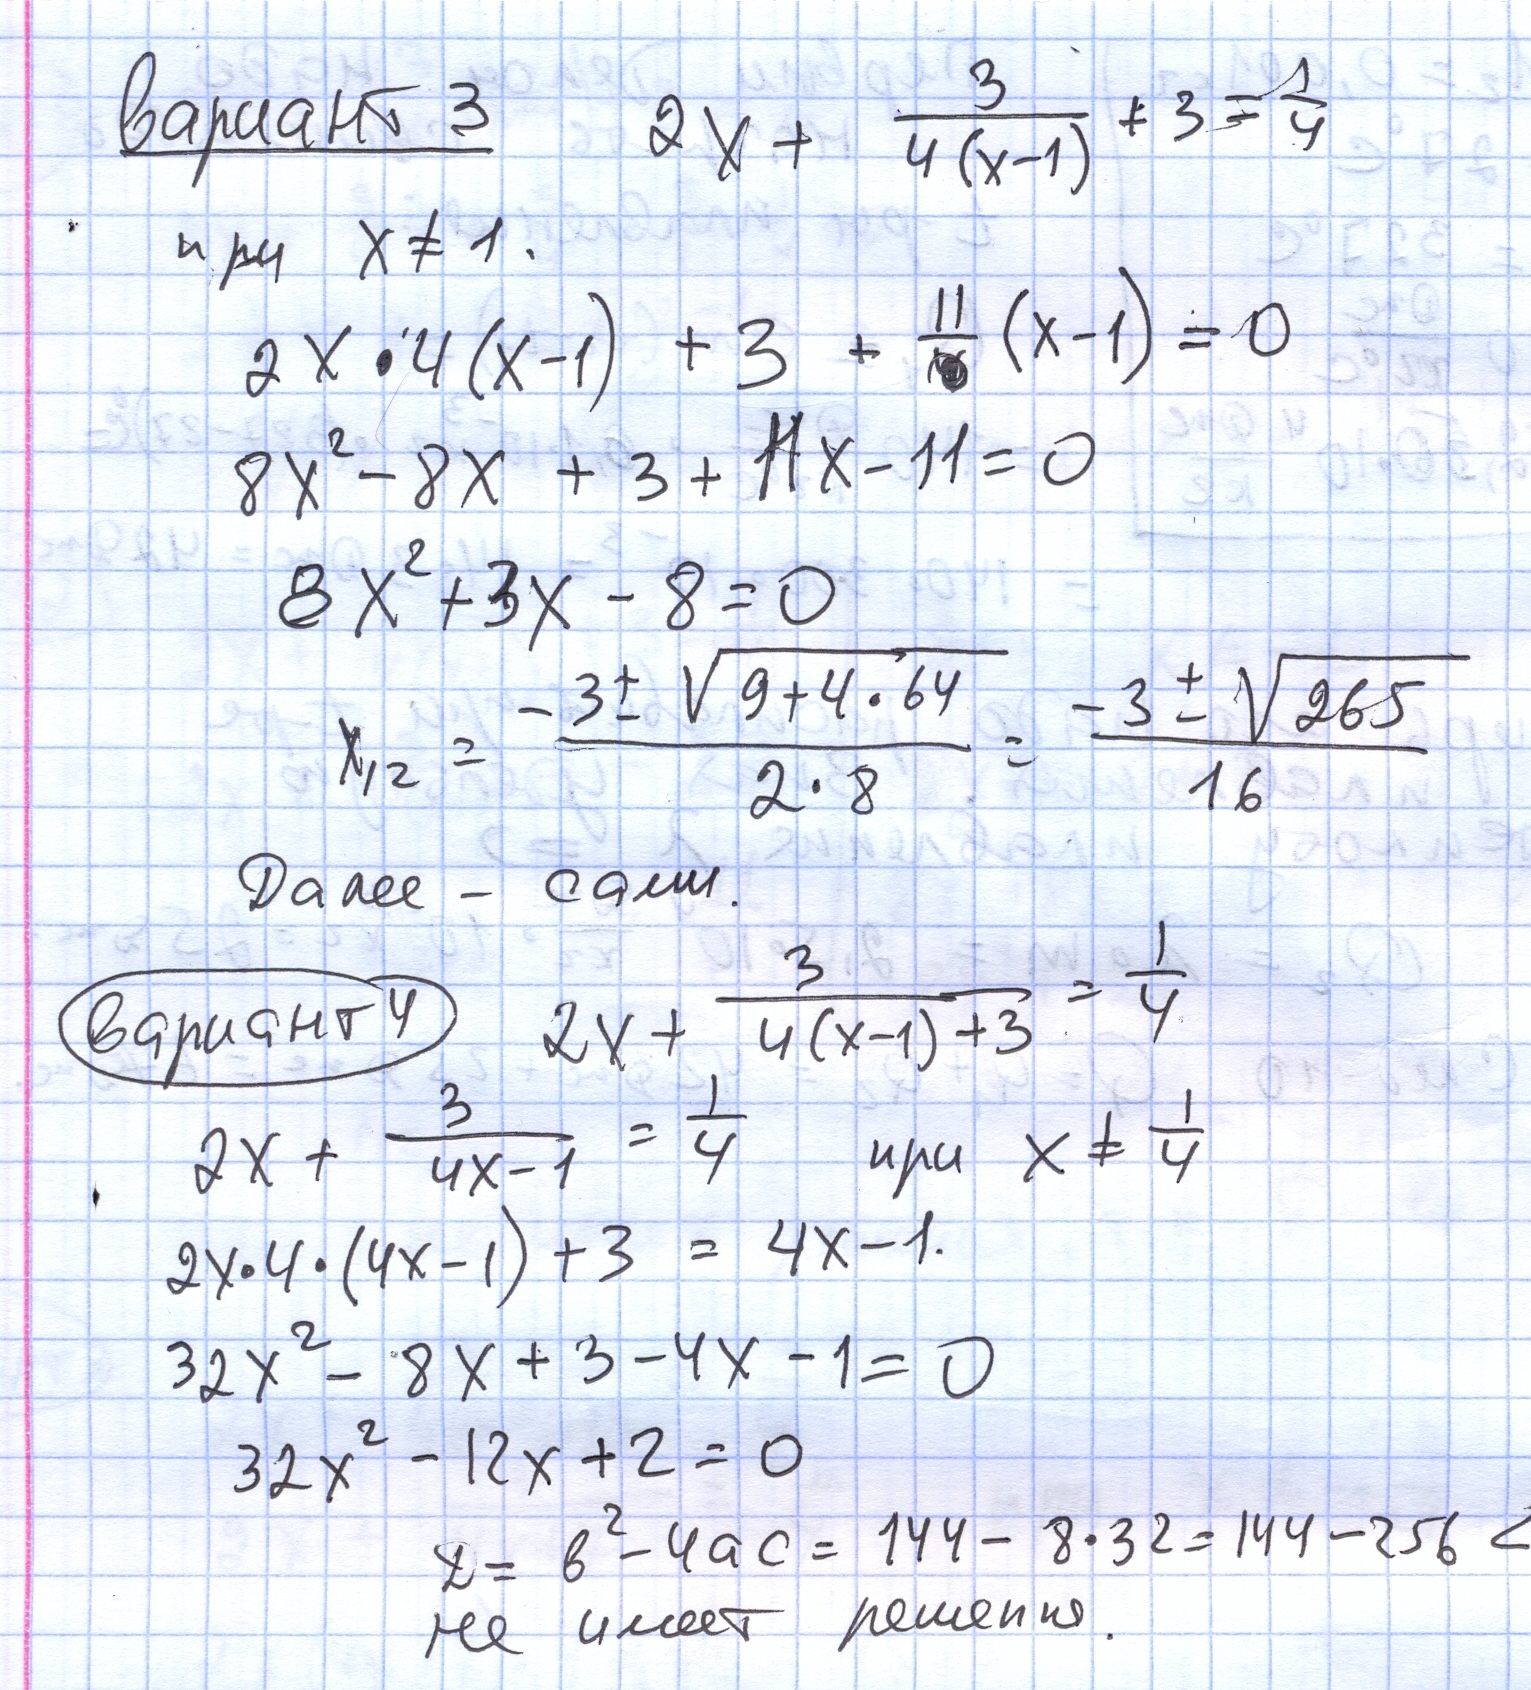 Вариант 3 2x + 3/(4(x-1)) + 3 = 1/4
при x ≠ 1.
2x·4(x-1) + 3 + 11 (x-1) = 0
8x² - 8x + 3 + 11x - 11 = 0
8x² + 3x - 8 = 0
x₁₂ = (-3 ± √(9+4·64))/(2·8) = (-3 ± √265)/16
Далее - сами.
Вариант 4 2x + 3/(4(x-1)+3) = 1/4
2x + 3/(4x-1) = 1/4 при x ≠ 1/4
2x·4·(4x-1) + 3 = 4x-1.
32x² - 8x + 3 - 4x - 1 = 0
32x² - 12x + 2 = 0
D = b² - 4ac = 144 - 8·32 = 144 - 256 <
не имеет решения.